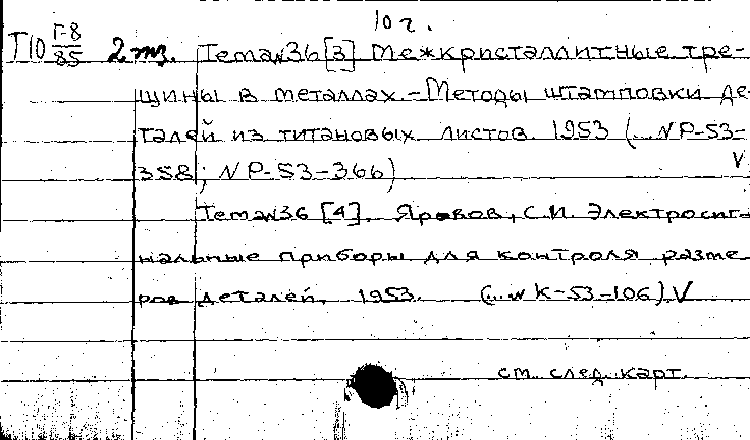 10 г.
Т10 Г-8/85 2 тэ. Тема №36 [3] Межкристаллитные тре-
щины в металлах. – Методы штамповки де-
талей из титановых листов. 1953 (... № Р-53-
358; № Р-53-366) V
Тема №36 [4]. , С.И. Электросиг-
нальные приборы для контроля разме
ров деталей. 1953. (... № К-53-106) V
см. след. карт.